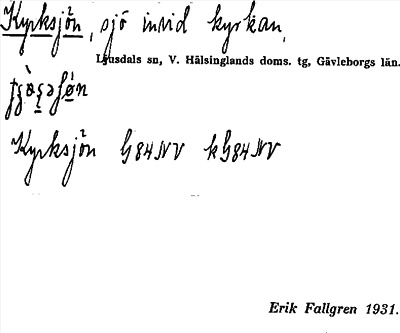 Kyrksjön, sjö invid kyrkan,
Ljusdals sn, V. Hälsinglands doms. tg, Gävleborgs län.
Kyrksjön G84NV kG84NV
Erik Fallgren 1931.